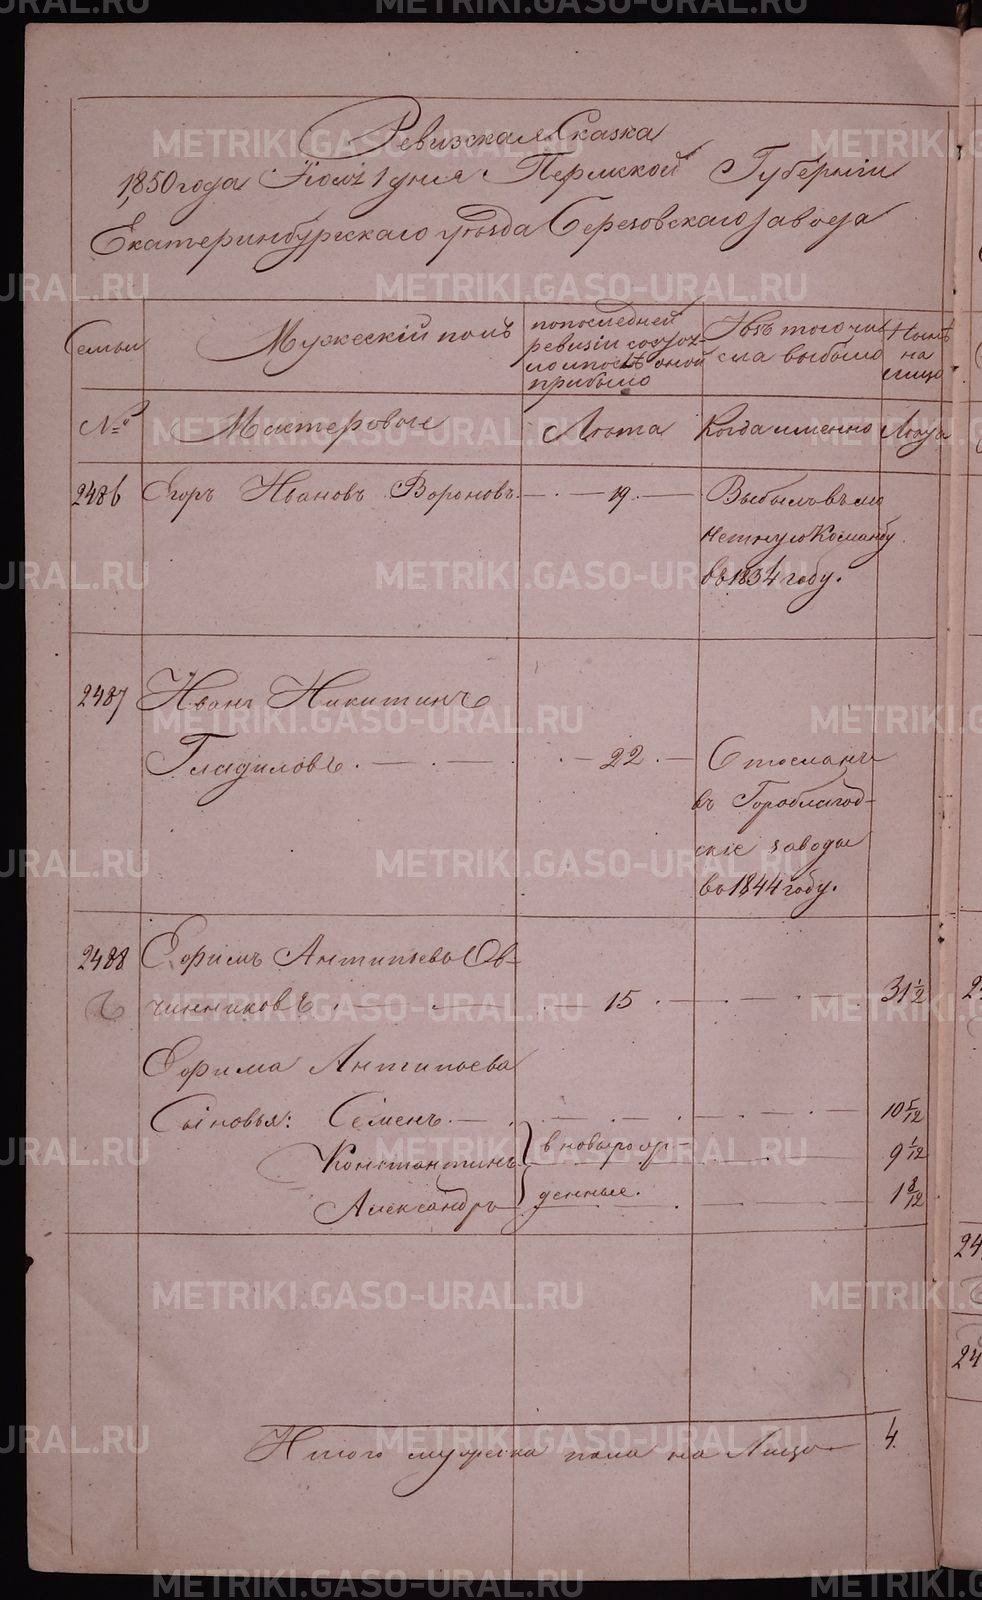 Ревизская Сказка
1850 года Іюля 1 дня Пермской Губерніи
Екатеринбургскаго уѣзда Березовскаго завода
Семьи
Мужескій полъ
по последней
ревизіи состоя-
ло и послѣ оной
прибыло
Изъ того чи
сла выбыло
Нынѣ
на
лицо
№
Мастеровые
Лѣта
Когда именно
Лѣта
2486 Егоръ Ивановъ Вороновъ 19 Выбылъ въ мо
нетную Команду
въ 1834 году.
2487 Иванъ Никитинъ
Гладиловъ 22 Отосланъ
въ Гороблагод-
скіе заводы
въ 1844 году.
2488 Ефимъ Антипьевъ Ов-
чинниковъ 15 31 1/2
Ефима Антипьева
Сыновья: Семенъ 10 5/12
Константинъ вновь рож- 9 1/12
Александръ денные. 1 8/12
Итого мужеска пола на Лицо 4.
METRIKI.GASO-URAL.RU